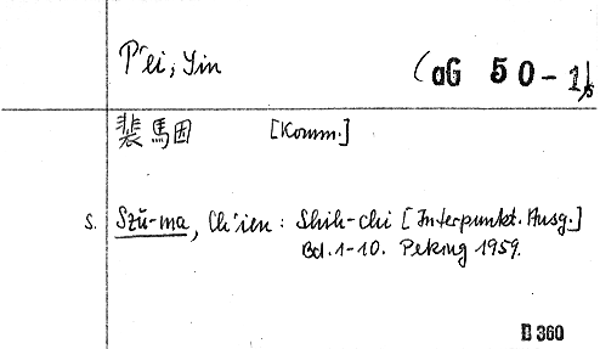 P'ei, Yin (aG 50-1)
裴馬因 [Komm.]
s. Szŭ-ma, Ch'ien: Shih-chi [Interpunkt. Ausg.]
Bd. 1-10. Peking 1959.
D 360